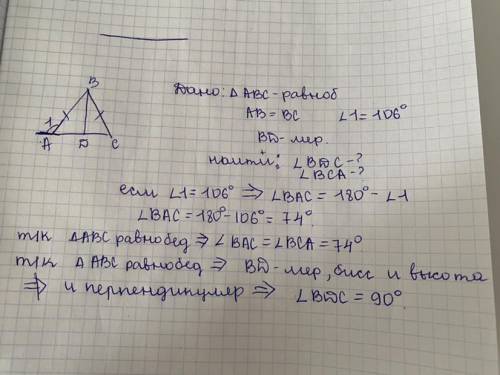 B
1
A D C
Дано: △ABC - равноб
AB = BC ∠1 = 106°
BD - мер.
найти: ∠BDC - ?
∠BCA - ?
если ∠1 = 106° ⇒ ∠BAC = 180° - ∠1
∠BAC = 180° - 106° = 74°.
т/к △ABC равнобед ⇒ ∠BAC = ∠BCA = 74°
т/к △ABC равнобед ⇒ BD - мер, бисс и высота
⇒ и перпендикуляр ⇒ ∠BDC = 90°.